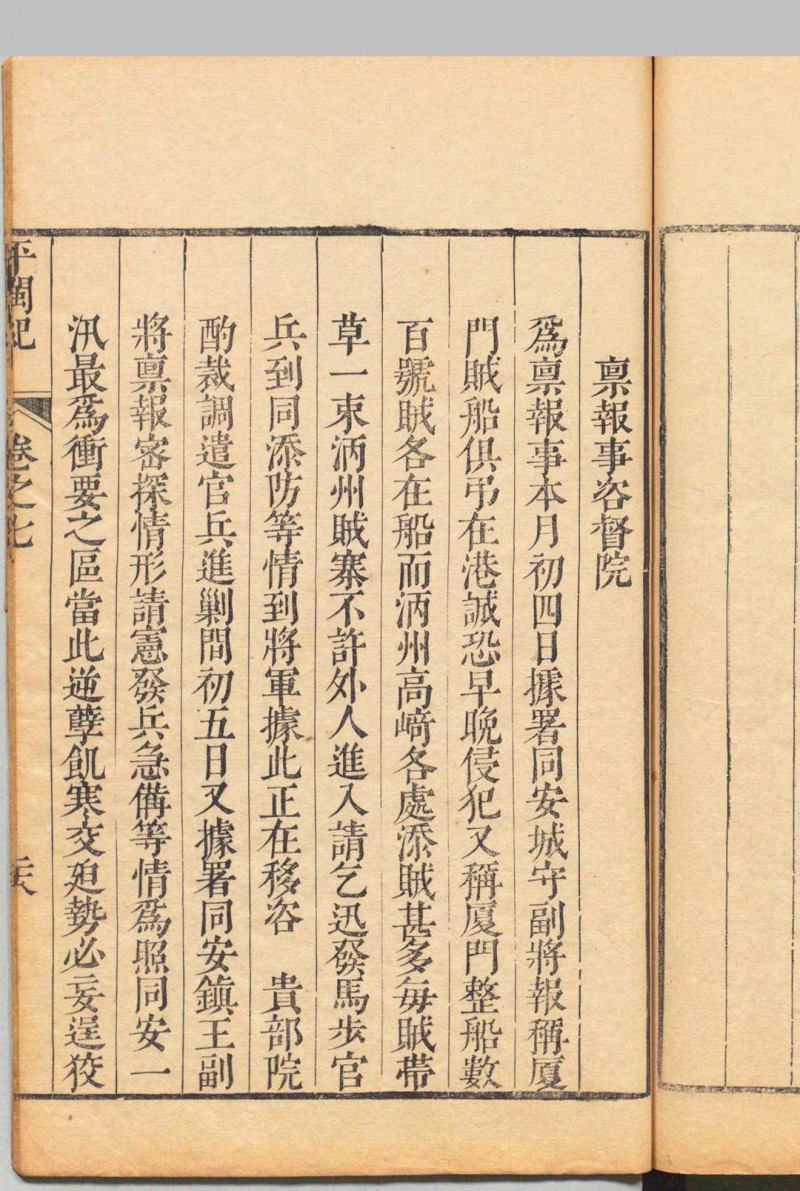 禀報事咨督院
爲禀報事本月初四日據署同安城守副將報稱厦
門賊船俱弔在港誠恐早晚侵犯又稱厦門整船數
百號賊各在船而洒州高﨑各處添賊甚多每賊帶
草一束洒州賊寨不許外人進入請乞迅發馬步官
兵到同添防等情到將軍據此正在移咨　貴部院
酌裁調遣官兵進剿間初五日又據署同安鎮王副
將禀報審探情形請憲發兵急備等情爲照同安一
汛最爲衝要之區當此逆孽飢寒交廹勢必妄逞狡
平閩紀　卷之七